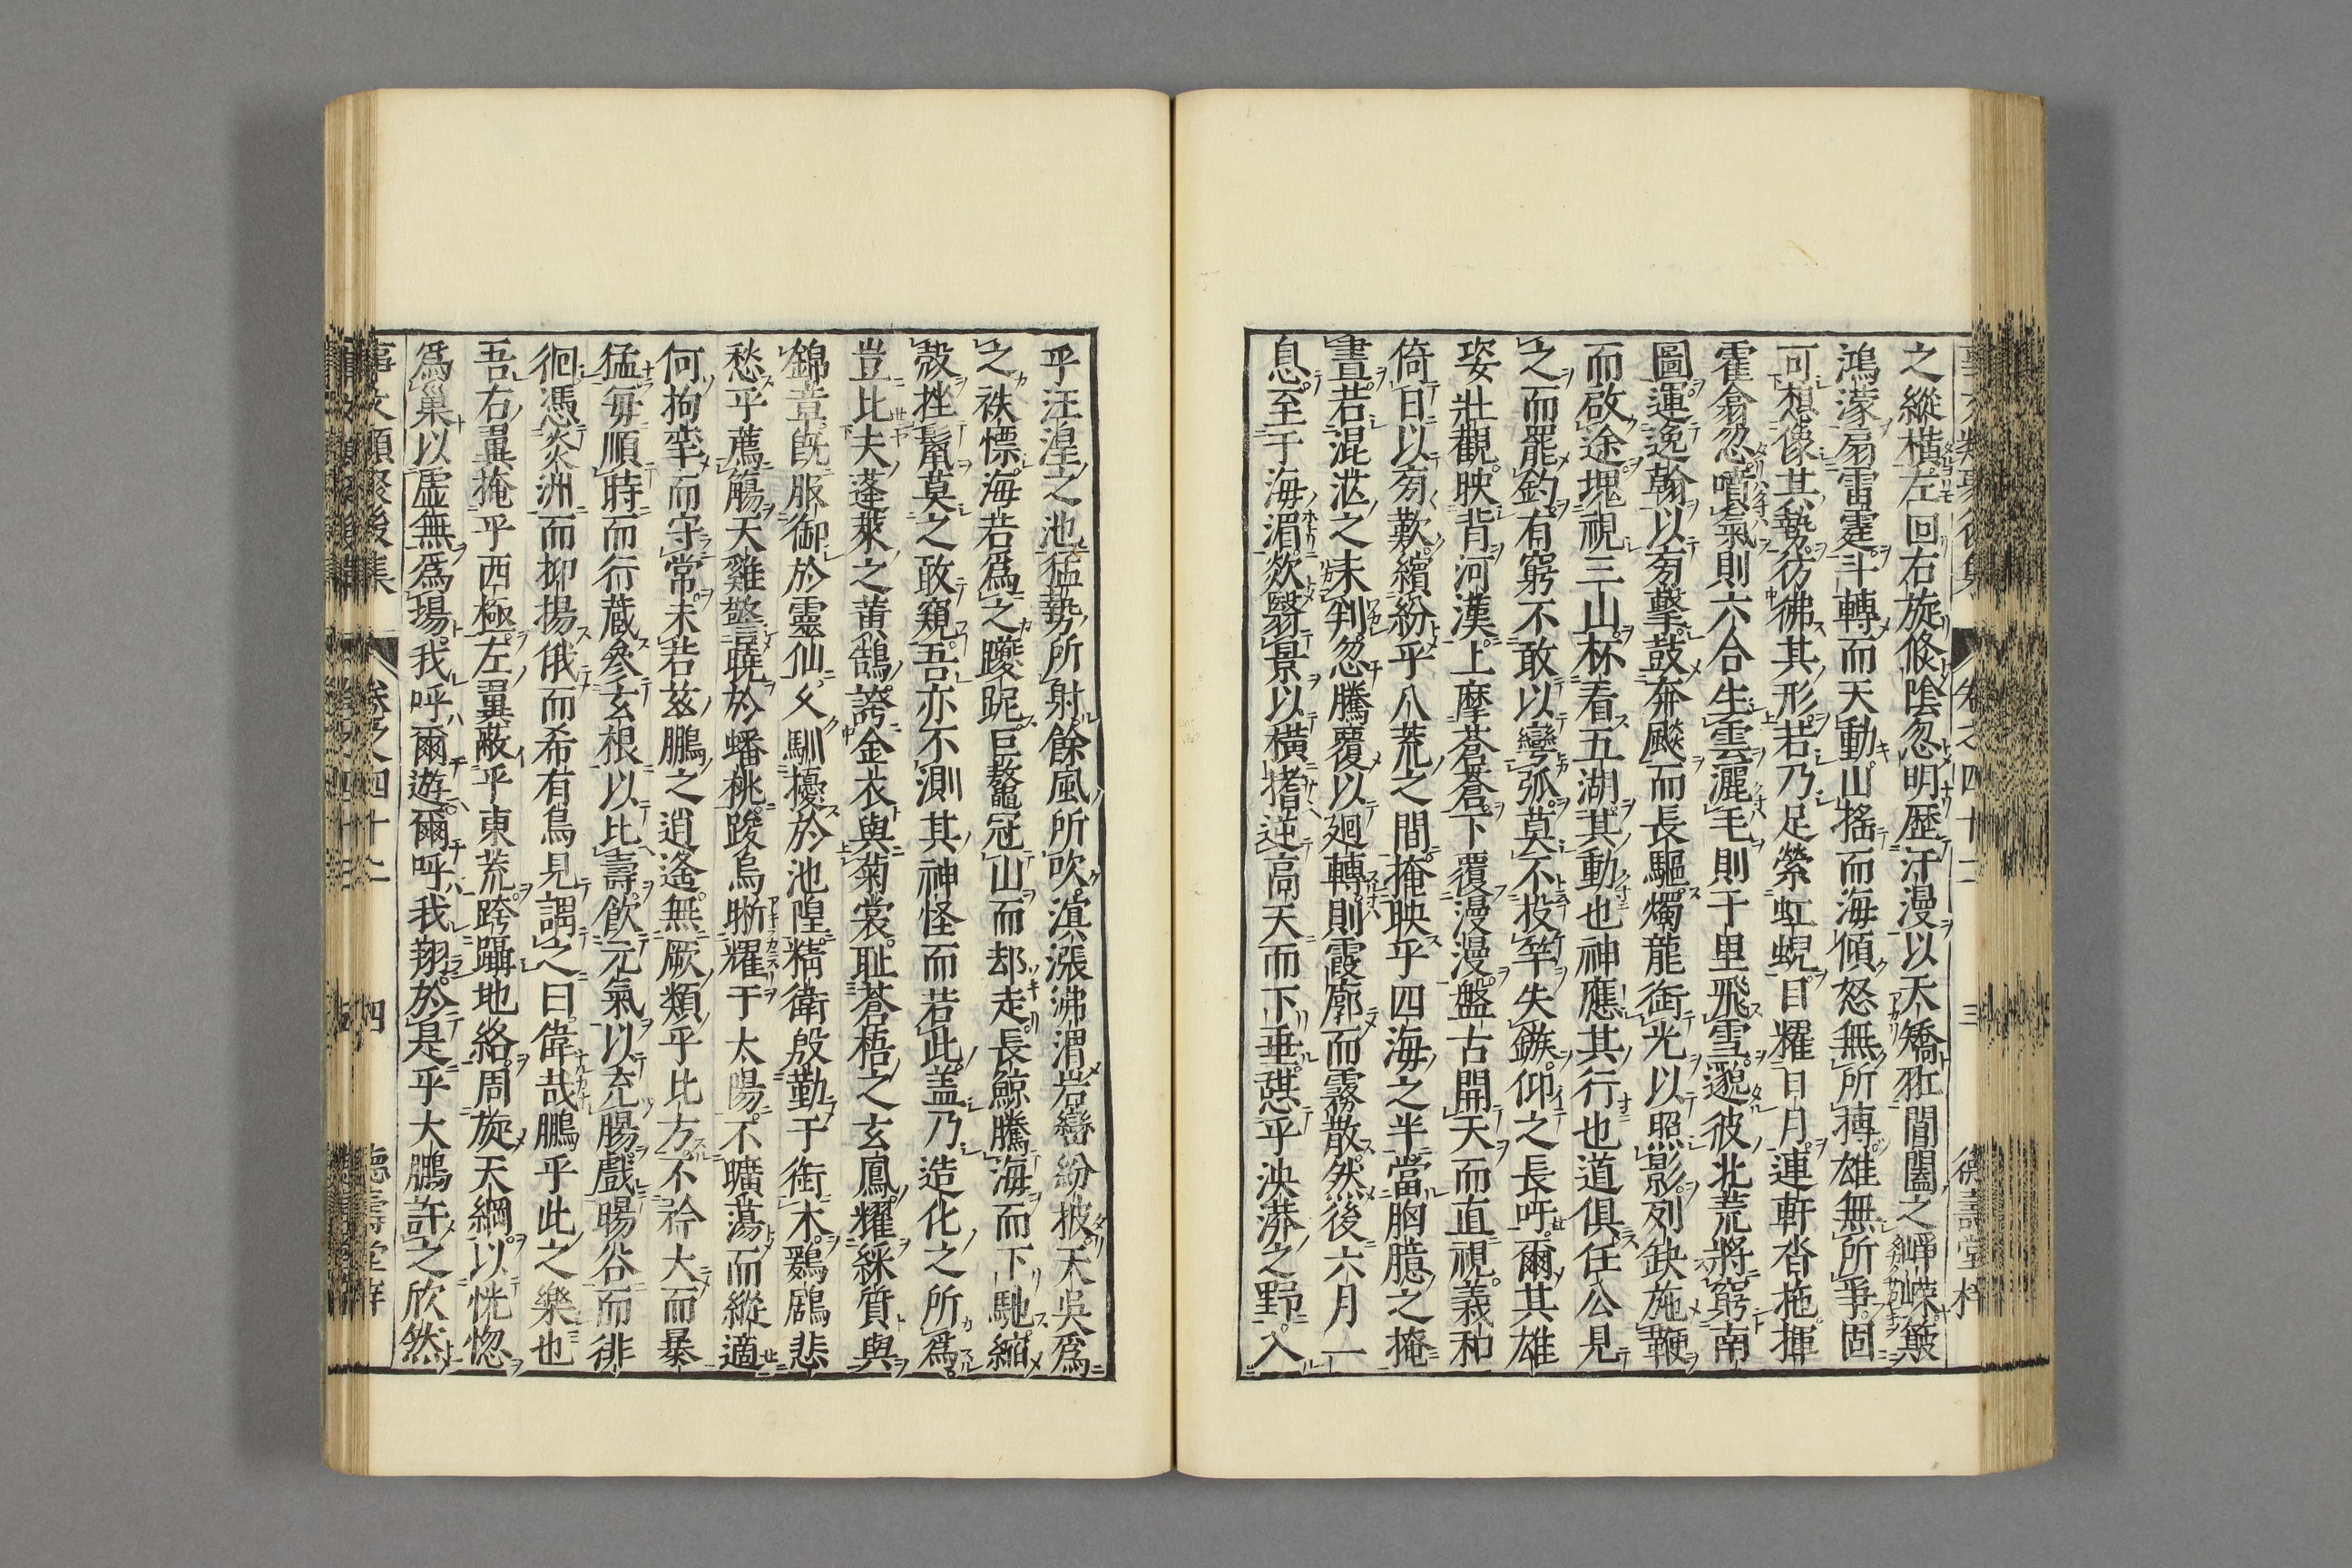 之縱橫左回右旋倐陰忽明歷汗漫以夭矯羾閶闔之崢嶸簸
鴻濛扇雷霆斗轉而天動山搖而海傾怒無所搏雄無所爭固
可想像其勢彷彿其形若乃足縈虹蜺目耀日月連軒沓拖揮
霍翕忽噴氣則六合生雲灑毛則千里飛雪邈彼北荒將窮南
圖運逸翰以旁擊鼓奔飈而長驅燭龍銜光以照影列缺施鞭
而啟途塊視三山杯看五湖其動也神應其行也道俱任公見
之而罷釣有窮不敢以彎弧莫不投竿失鏃仰之長吁爾其雄
姿壯觀映背河漢上摩蒼蒼下覆漫漫盤古開天而直視義和
倚日以旁歎繽紛乎八荒之間掩映乎四海之半當胸臆之掩
晝若混茫之未判忽騰覆以廻轉則霞廓而霧散然後六月一
息至于海湄欻翳景以橫㨋逆高天而下垂憇乎泱漭之野入
乎汪湟之池猛勢所射餘風所吹溟漲沸渭岩巒紛披天吳為
之袾慄海若為之躨跜巨鼇冠山而却走長鯨騰海而下馳縮
殼挫鬣莫之敢窺吾亦不測其神怪而若此盖乃造化之所為
豈比夫蓬萊之黃鵠誇金衣與菊裳耻蒼梧之玄鳳耀綵質與
錦章旣服御於靈仙乆馴擾於池隍精衛殷勤于銜木鶢鶋悲
愁乎薦觴天雞警曉於蟠桃踆烏晣耀于太陽不曠蕩而縱適
何拘牽而守常未若兹鵬之逍遙無厥類乎比方不矜大而暴
猛每順時而行蔵參玄根以比壽飲元氣以充腸戲暘谷而徘
徊憑炎洲而抑揚俄而希有鳥見謂之曰偉哉鵬乎此之樂也
吾右翼掩乎西極左翼蔽乎東荒跨躡地絡周旋天綱以恍惚
為巢以虛無為場我呼爾遊爾呼我翔於是乎大鵬許之欣然
事文類聚後集 卷之四十二 四 德壽堂梓